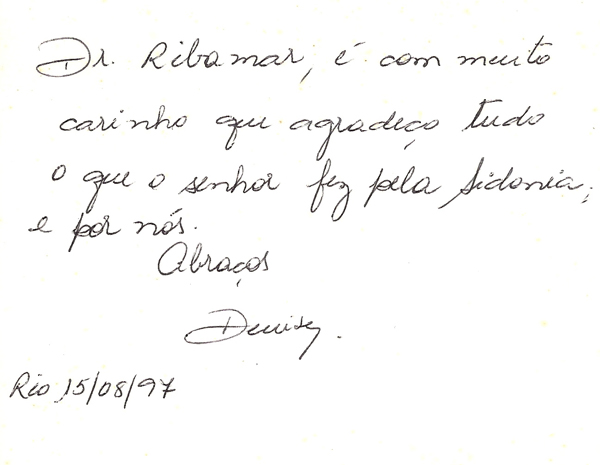 Dr. Ribamar, é com muito
carinho que agradeço tudo
o que o senhor fez pela Sidonia,
e por nós.
Abraços
Denise.
Rio, 15/08/97